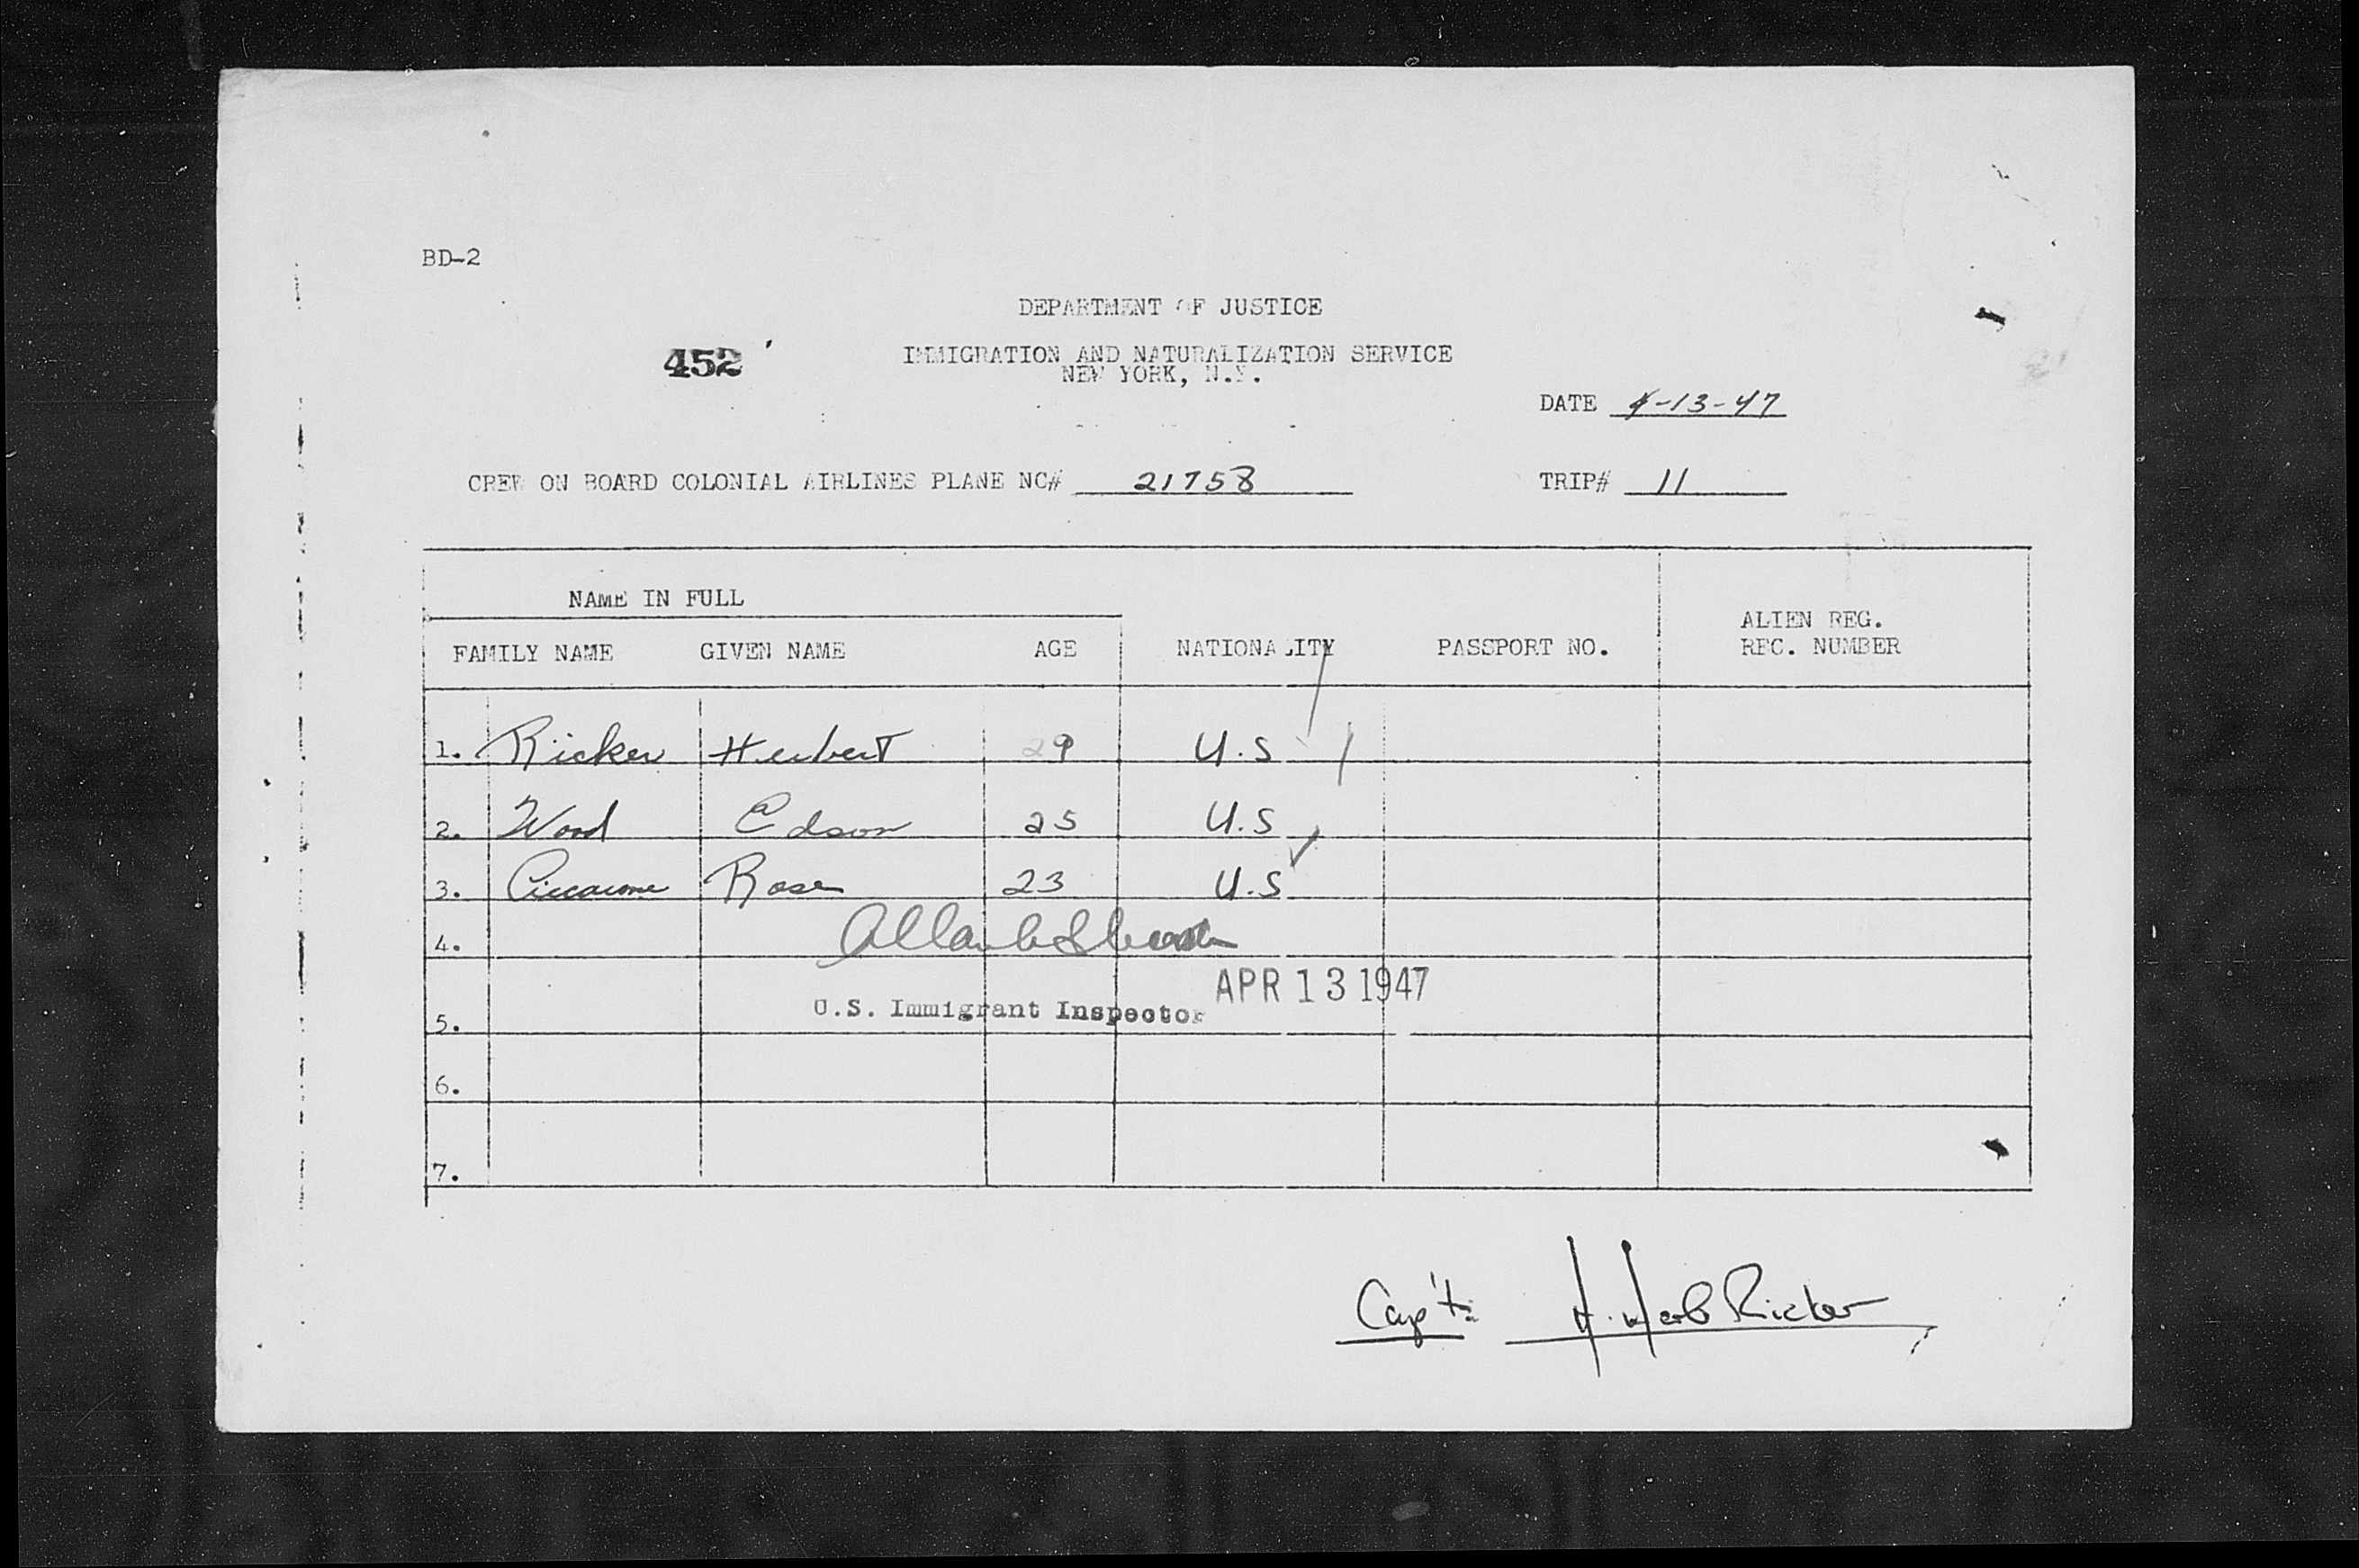 BD-2
DEPARTMENT OF JUSTICE
452
IMMIGRATION AND NATURALIZATION SERVICE
NEW YORK, N.Y.
DATE 4-13-47
CREW ON BOARD COLONIAL AIRLINES PLANE NC# 21758 TRIP# 11
NAME IN FULL
FAMILY NAME GIVEN NAME AGE NATIONALITY PASSPORT NO. ALIEN REG. REC. NUMBER
1. Ricker Herbert 29 U.S
2. Wood Edson 25 U.S
3. Ciccarone Rose 23 U.S
4.
APR 13 1947
5. U.S. Immigrant Inspector
6.
7.
Cap't: H. Herb Ricker